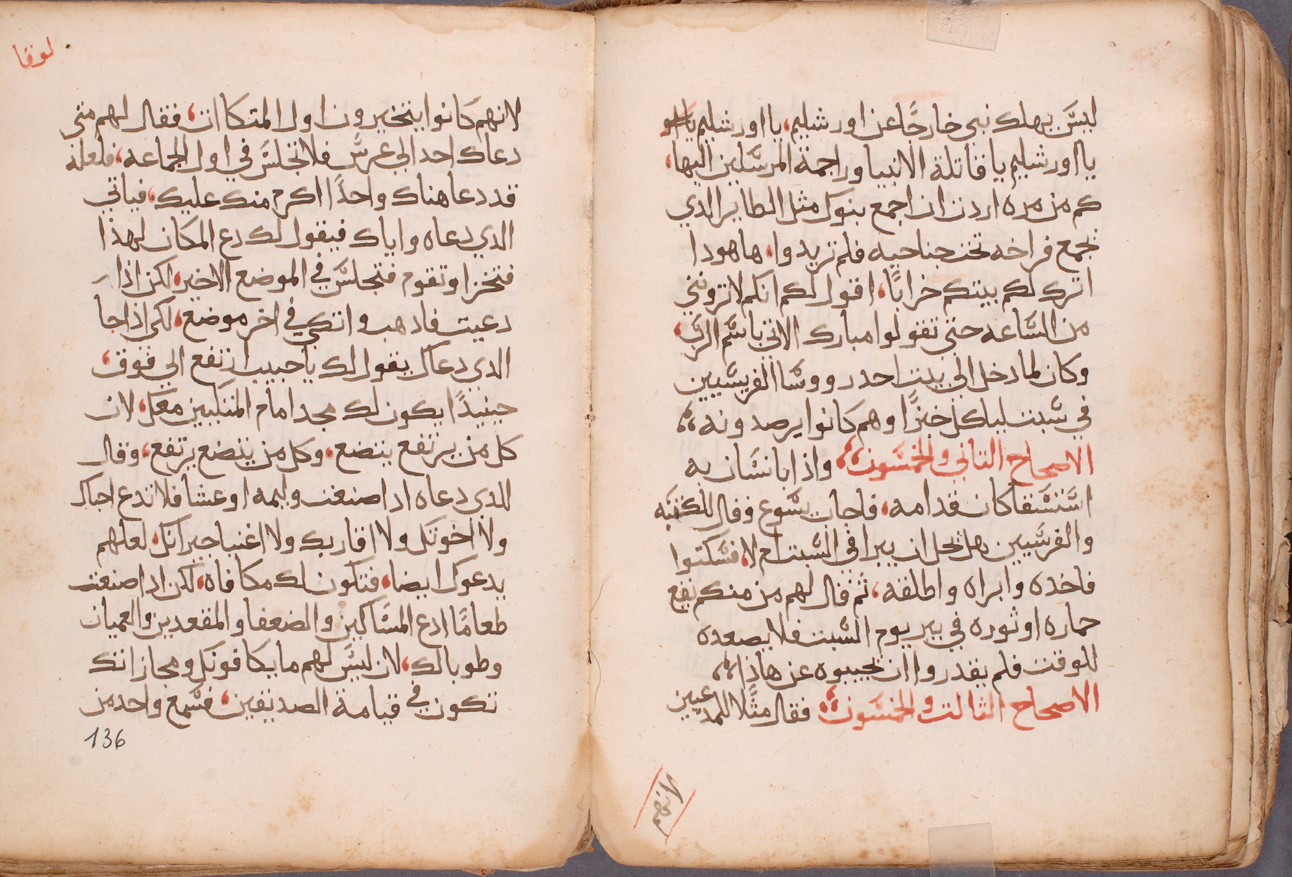 ليس يهلك نبي خارجًا عن اورشليم، يا اورشليم
يا اورشليم يا قاتلة الانبيا وراجمة المرسلين اليها،
كم من مره اردت ان اجمع بنوك مثل الطاير الذي
يجمع فراخه تحت جناحيه فلم تريدوا، ها هودا
اترك لكم بيتكم خرابًا، اقول لكم انكم لا تروني
من الساعه حتى تقولوا مبارك الاتي باسم الرب،
وكان لما دخل الى بيت احد رووسا الفريسيين
في سبت لياكل خبزًا وهم كانوا يرصدونه
الاصحاح التاني والخمسون، واذا بانسان به
استسقا كان قدامه، فاجاب يسوع وقال للكتبه
والفرسيين هل يحل ان يبرا في السبت ام لا، فسكتوا
فاخده وابراه واطلقه، ثم قال لهم من منكم يقع
حماره او ثوره في بير يوم السبت فلا يصعده
للوقت فلم يقدروا ان يجيبوه عن هاذا
الاصحاح التالت والخمسون، فقال مثلًا للمدعيين
لوقا
لانهم كانوا يتخيرون اول المتكاات، فقال لهم متى
دعاك احد الى عرس فلا تجلس في اول الجماعه، فلعله
قد دعا هناك واحدًا اكرم منك عليك، فياتي
الدي دعاه واياك فيقول لك دع المكان لهذا
فتخزا وتقوم فتجلس في الموضع الاخير، لكن اذا
دعيت فادهب واتكي في اخر موضع، لكي اذا جا
الدي دعاك يقول لك يا حبيب ارتفع الى فوق،
حينيذًا يكون لك مجد امام المتكيين معك، لان
كل من يرتفع يتضع، وكل من يتضع يرتفع، وقال
للدي دعاه ادا صنعت وليمه او عشا فلا تدع احباك
ولا اخوتك ولا اقاربك ولا اغنيا جيرانك، لعلهم
يدعوك ايضا، فتكون لك مكافاه، لكن ادا صنعت
طعامًا ادع المساكين والضعفا والمقعدين والعميان
وطوبا لك، لان ليس لهم ما يكافونك ومجازاتك
تكون في قيامة الصديقين، فسمع واحد من
136